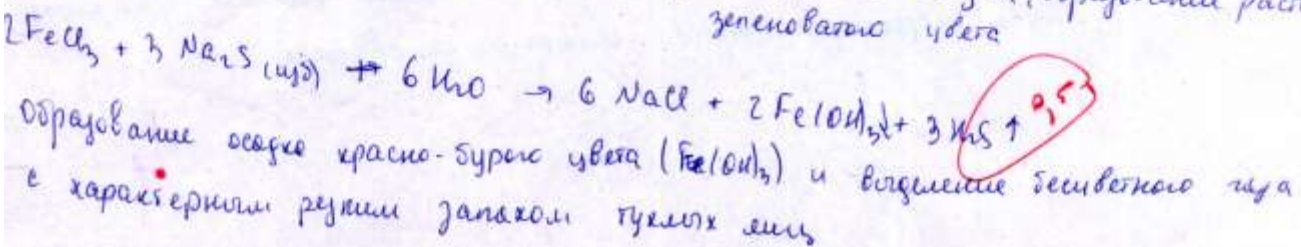 зеленоватого цвета
2FeCl₃ + 3 Na₂S (изб) + 6 H₂O → 6 NaCl + 2 Fe(OH)₃↓ + 3 H₂S ↑ 0,5
Образование осадка красно-бурого цвета (Fe(OH)₃) и выделение бесцветного газа
с характерным резким запахом тухлых яиц